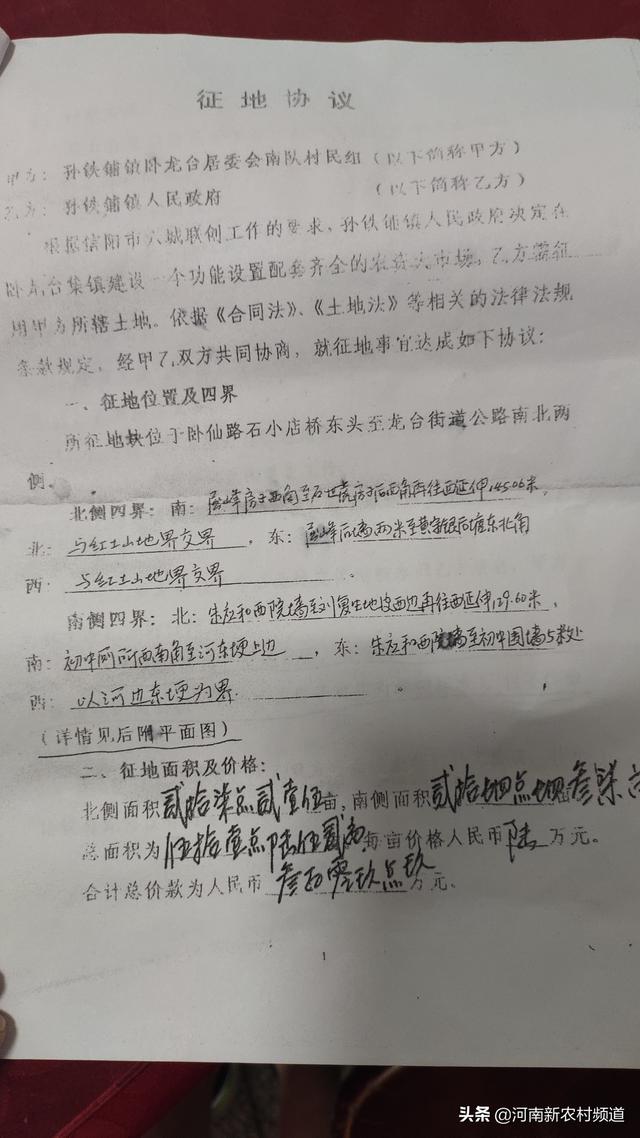 征地协议
甲方：孙铁铺镇卧龙台居委会南队村民组（以下简称甲方）
乙方：孙铁铺镇人民政府 （以下简称乙方）
根据信阳市六城联创工作的要求，孙铁铺镇人民政府决定在
卧龙台集镇建设一个功能设置配套齐全的农贸大市场，乙方需征
用甲方所辖土地。依据《合同法》、《土地法》等相关的法律法规
条款规定，经甲乙双方共同协商，就征地事宜达成如下协议：
一、征地位置及四界
所征地块位于卧仙路石小店桥东头至龙台街道公路南北两
侧。
北侧四界：南：房子西角至房子后西角再往西延伸145.06米，
北：与红土山地界交界，东：后墙两米至黄家银后塘东北角
西：与红土山地界交界。
南侧四界：北：朱应和西院墙至刘复生地坡西边再往西延伸129.60米，
南：初中厕所西南角至河东埂上边，东：朱应和西院墙至初中围墙
西：以河边东埂为界。
（详情见后附平面图）
二、征地面积及价格：
北侧面积贰拾柒点贰壹伍亩，南侧面积贰拾肆点肆叁柒亩
总面积为伍拾壹点陆伍贰亩每亩价格人民币陆万元。
合计总价款为人民币叁百零玖点玖万元。
1
头条 @河南新农村频道